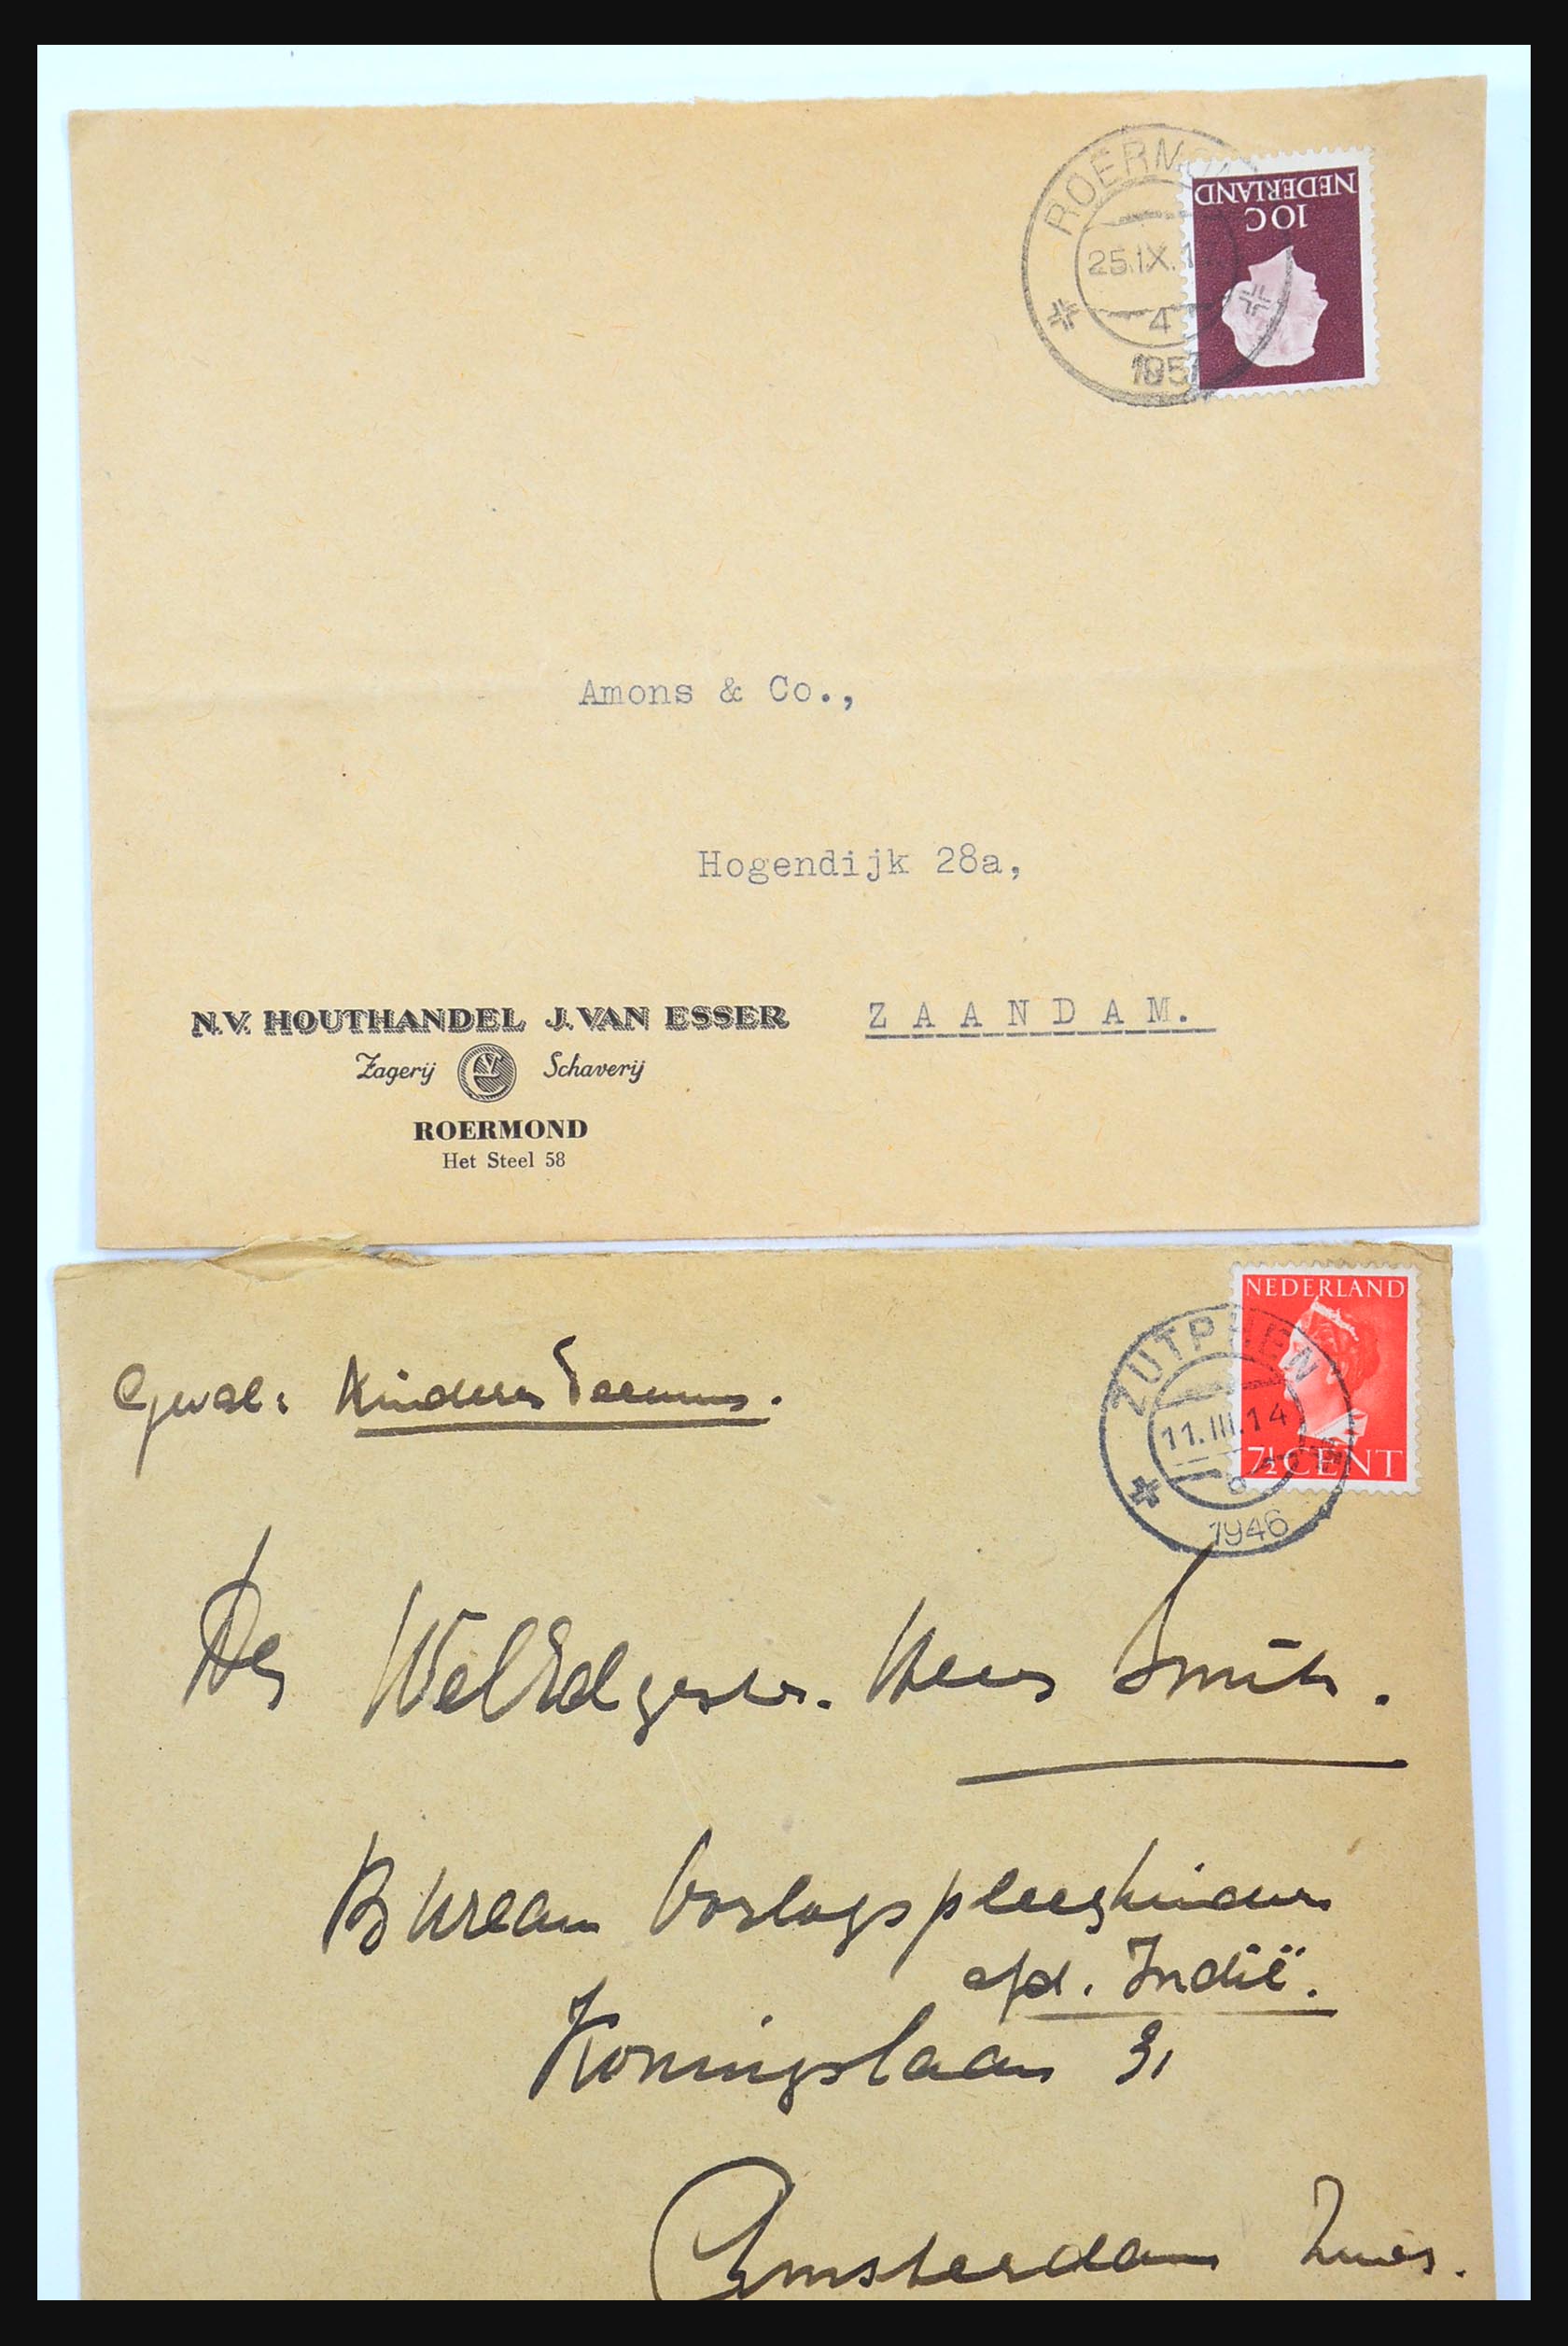 ROERM
25.IX.1
4
1957
NEDERLAND
10C
Amons & Co.,
Hogendijk 28a,
N.V. HOUTHANDEL J. VAN ESSER
Z A A N D A M.
Zagerij Schaverij
ROERMOND
Het Steel 58
NEDERLAND
7½ CENT
ZUTPHEN
11.III.14
1946
Kinderen
Den WelEdgestr. Heer Smit.
Bureau Oorlogspleegkinderen
afd. Indië.
Koningslaan 31
Amsterdam Zuid.